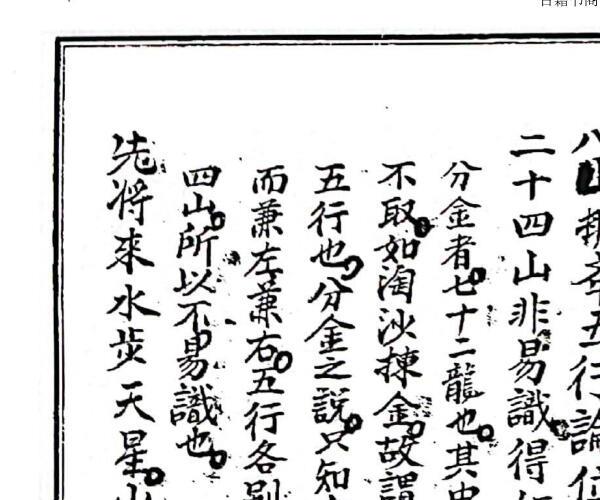 五行論
二十四山非易識得
分金者七十二龍也其
不取如淘沙揀金故謂
五行也分金之說只知
而兼左兼右五行各別
四山所以不易識也
先將來水步天星